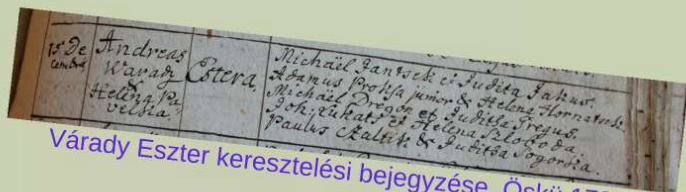 15 De
cembris
Andreas
Warady
&
Helena Pa
velsia
Estera,
Michaël Jantsek et Judita Jakus.
Adamus Proksa junior & Helena Hornatsek.
Michaël Dregon et Juditha Fregus.
Joh: Lukats et Helena Szloboda.
Paulus Czaltik & Juditha Pogorsza.
Várady Eszter keresztelési bejegyzése, Öskü